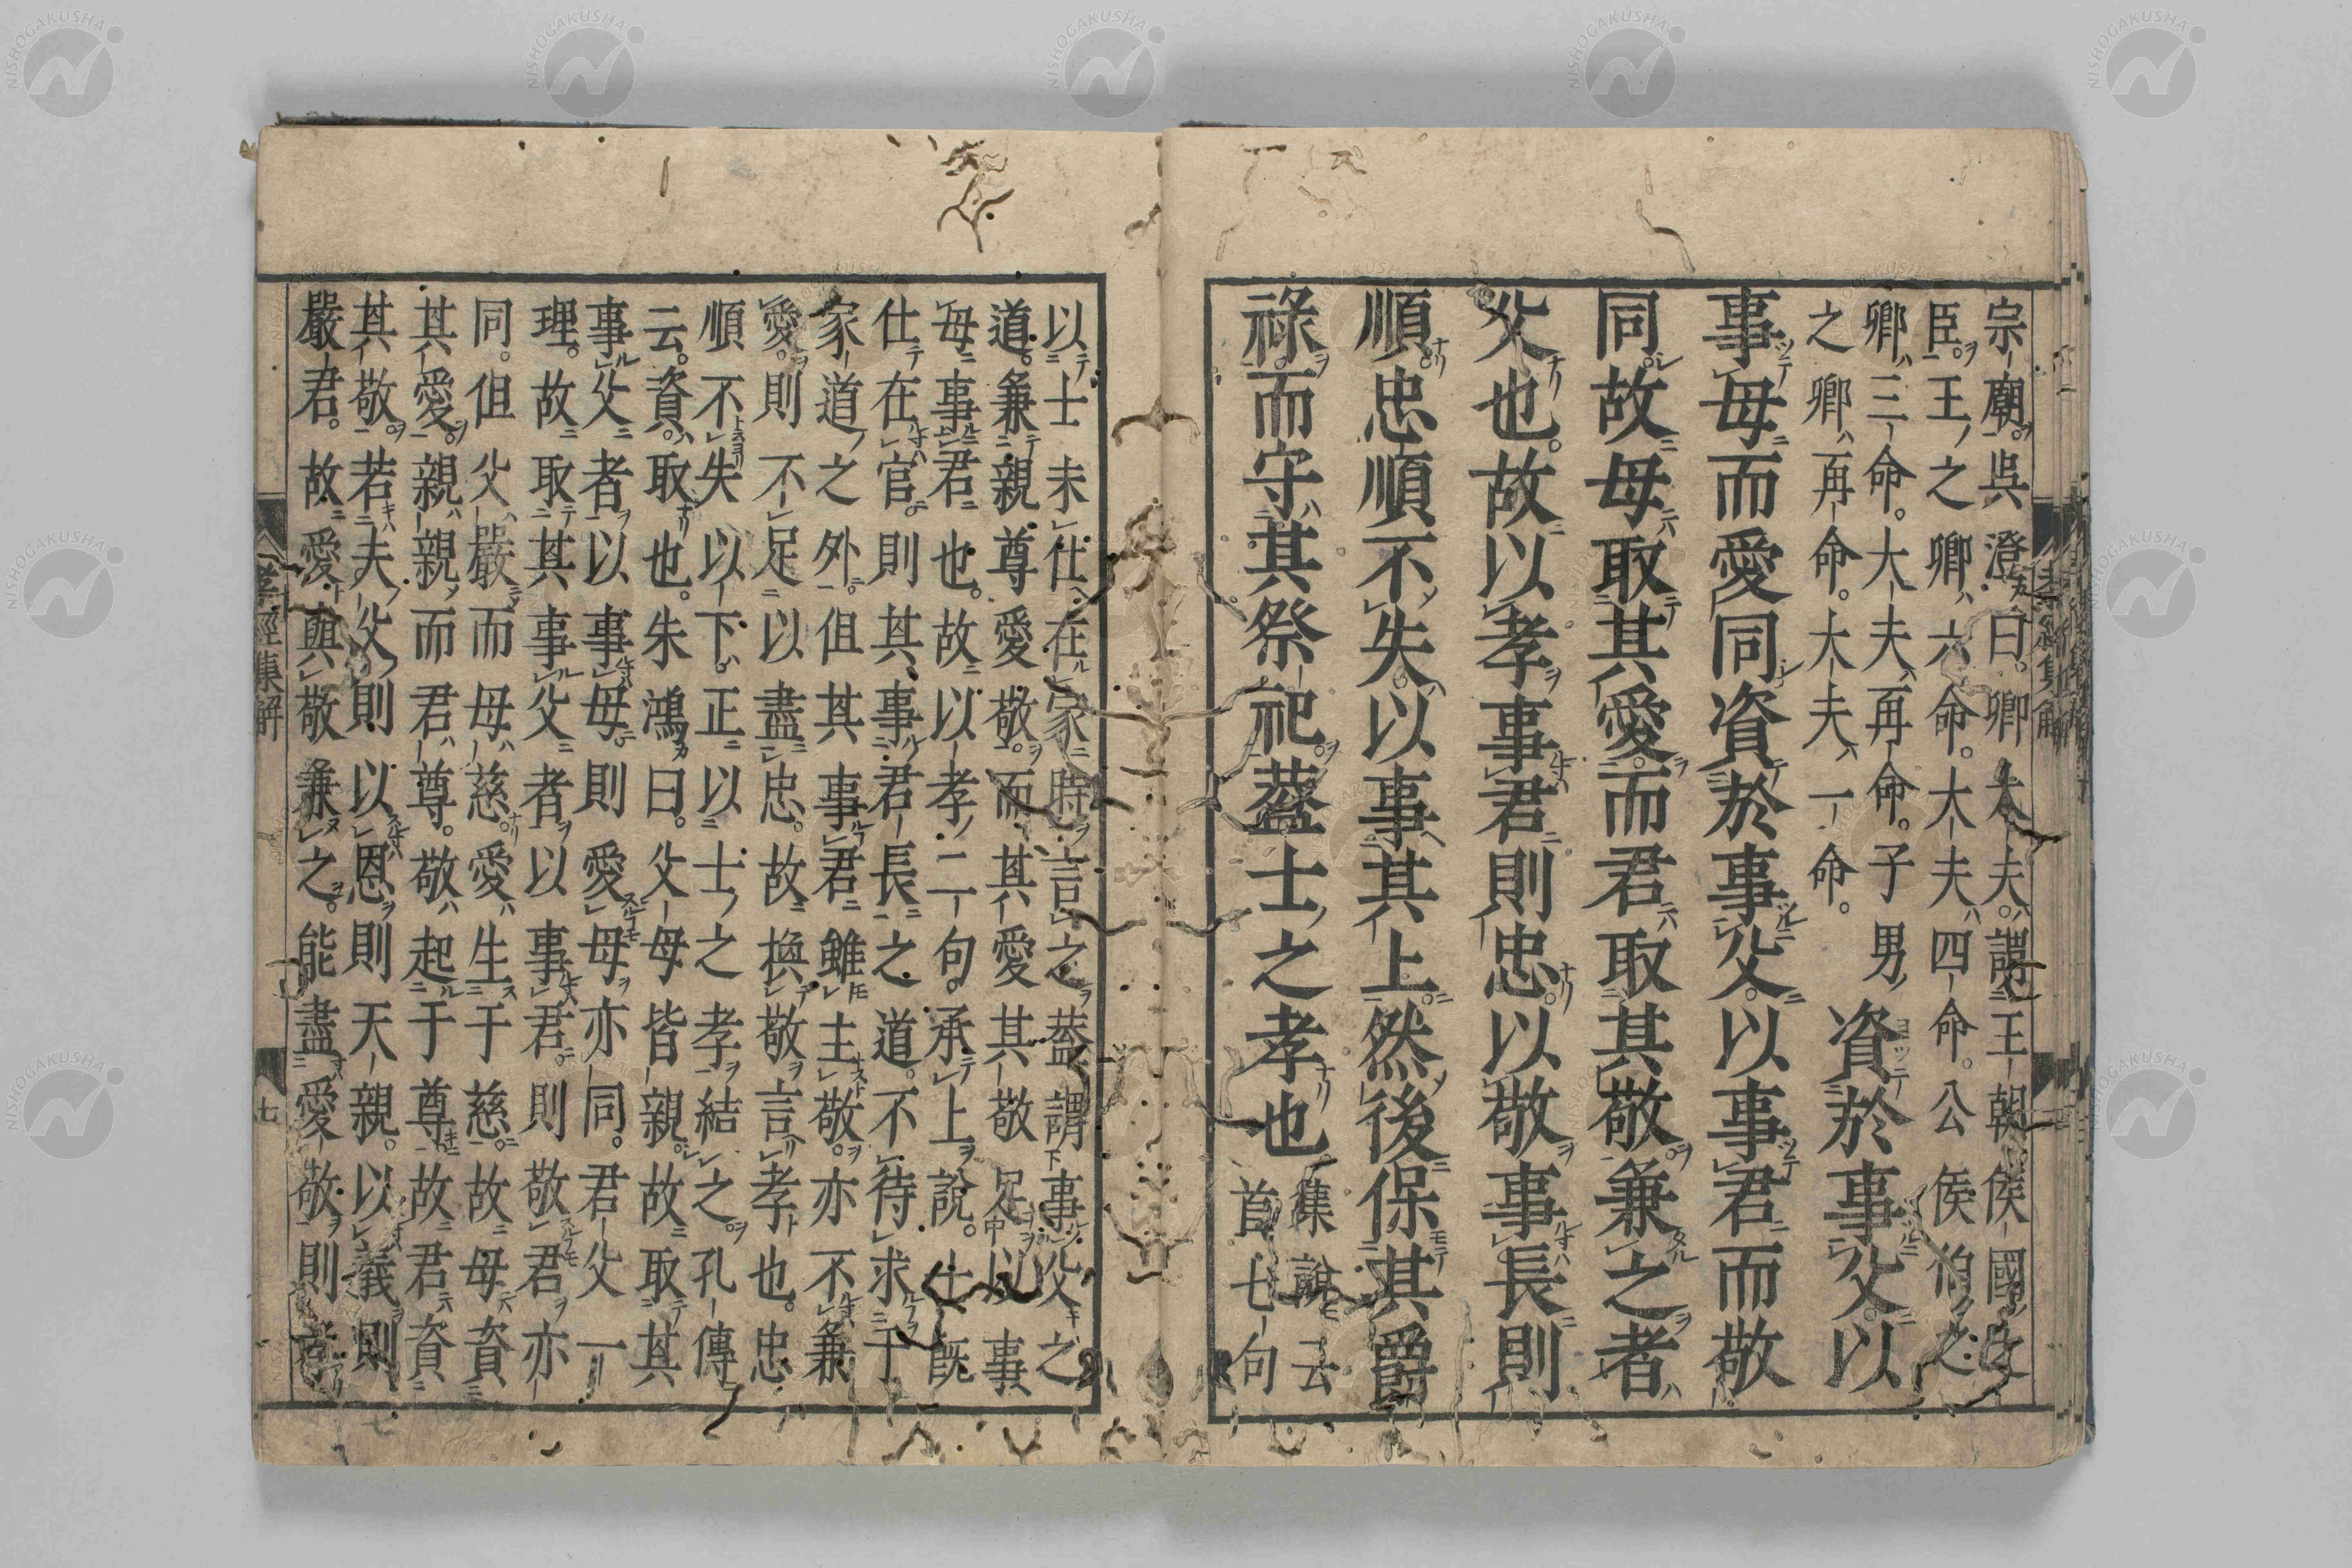 宗廟。吳澄曰。卿大夫。謂王朝侯國之
臣。王之卿六命。大夫四命。公侯伯之
卿三命。大夫再命。子男
之卿再命。大夫一命。
資於事父。以
事母而愛同資於事父。以事君而敬
同。故母取其愛。而君取其敬。兼之者
父也。故以孝事君則忠。以敬事長則
順。忠順不失。以事其上。然後保其爵
祿。而守其祭祀。蓋士之孝也
集說云
首七句
以士未仕在家時言之。蓋謂事父之
道。兼親尊愛敬。而其愛其敬足以事
母事君也。故以孝二句。承上說。士既
仕在官。則其事君長之道。不待求于
家道之外。但其事君雖主敬。亦不兼
愛。則不足以盡忠。故換敬言孝也。忠
順不失以下。正以士之孝結之。孔傳
云。資。取也。朱鴻曰。父母皆親。故取其
事父者以事母。則愛母亦同。君父一
理。故取其事父者以事君。則敬君亦
同。但父嚴而母慈。愛生于慈。故母資
其愛。親親而君尊。敬起于尊。故君資
其敬。若夫父則以恩則天親。以義則
嚴君。故愛與敬兼之。能盡愛敬。則
孝經集解
七
NISHOGAKUSHA